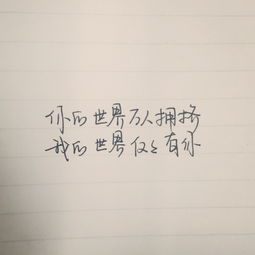 你的世界万人拥挤
我的世界仅仅有你